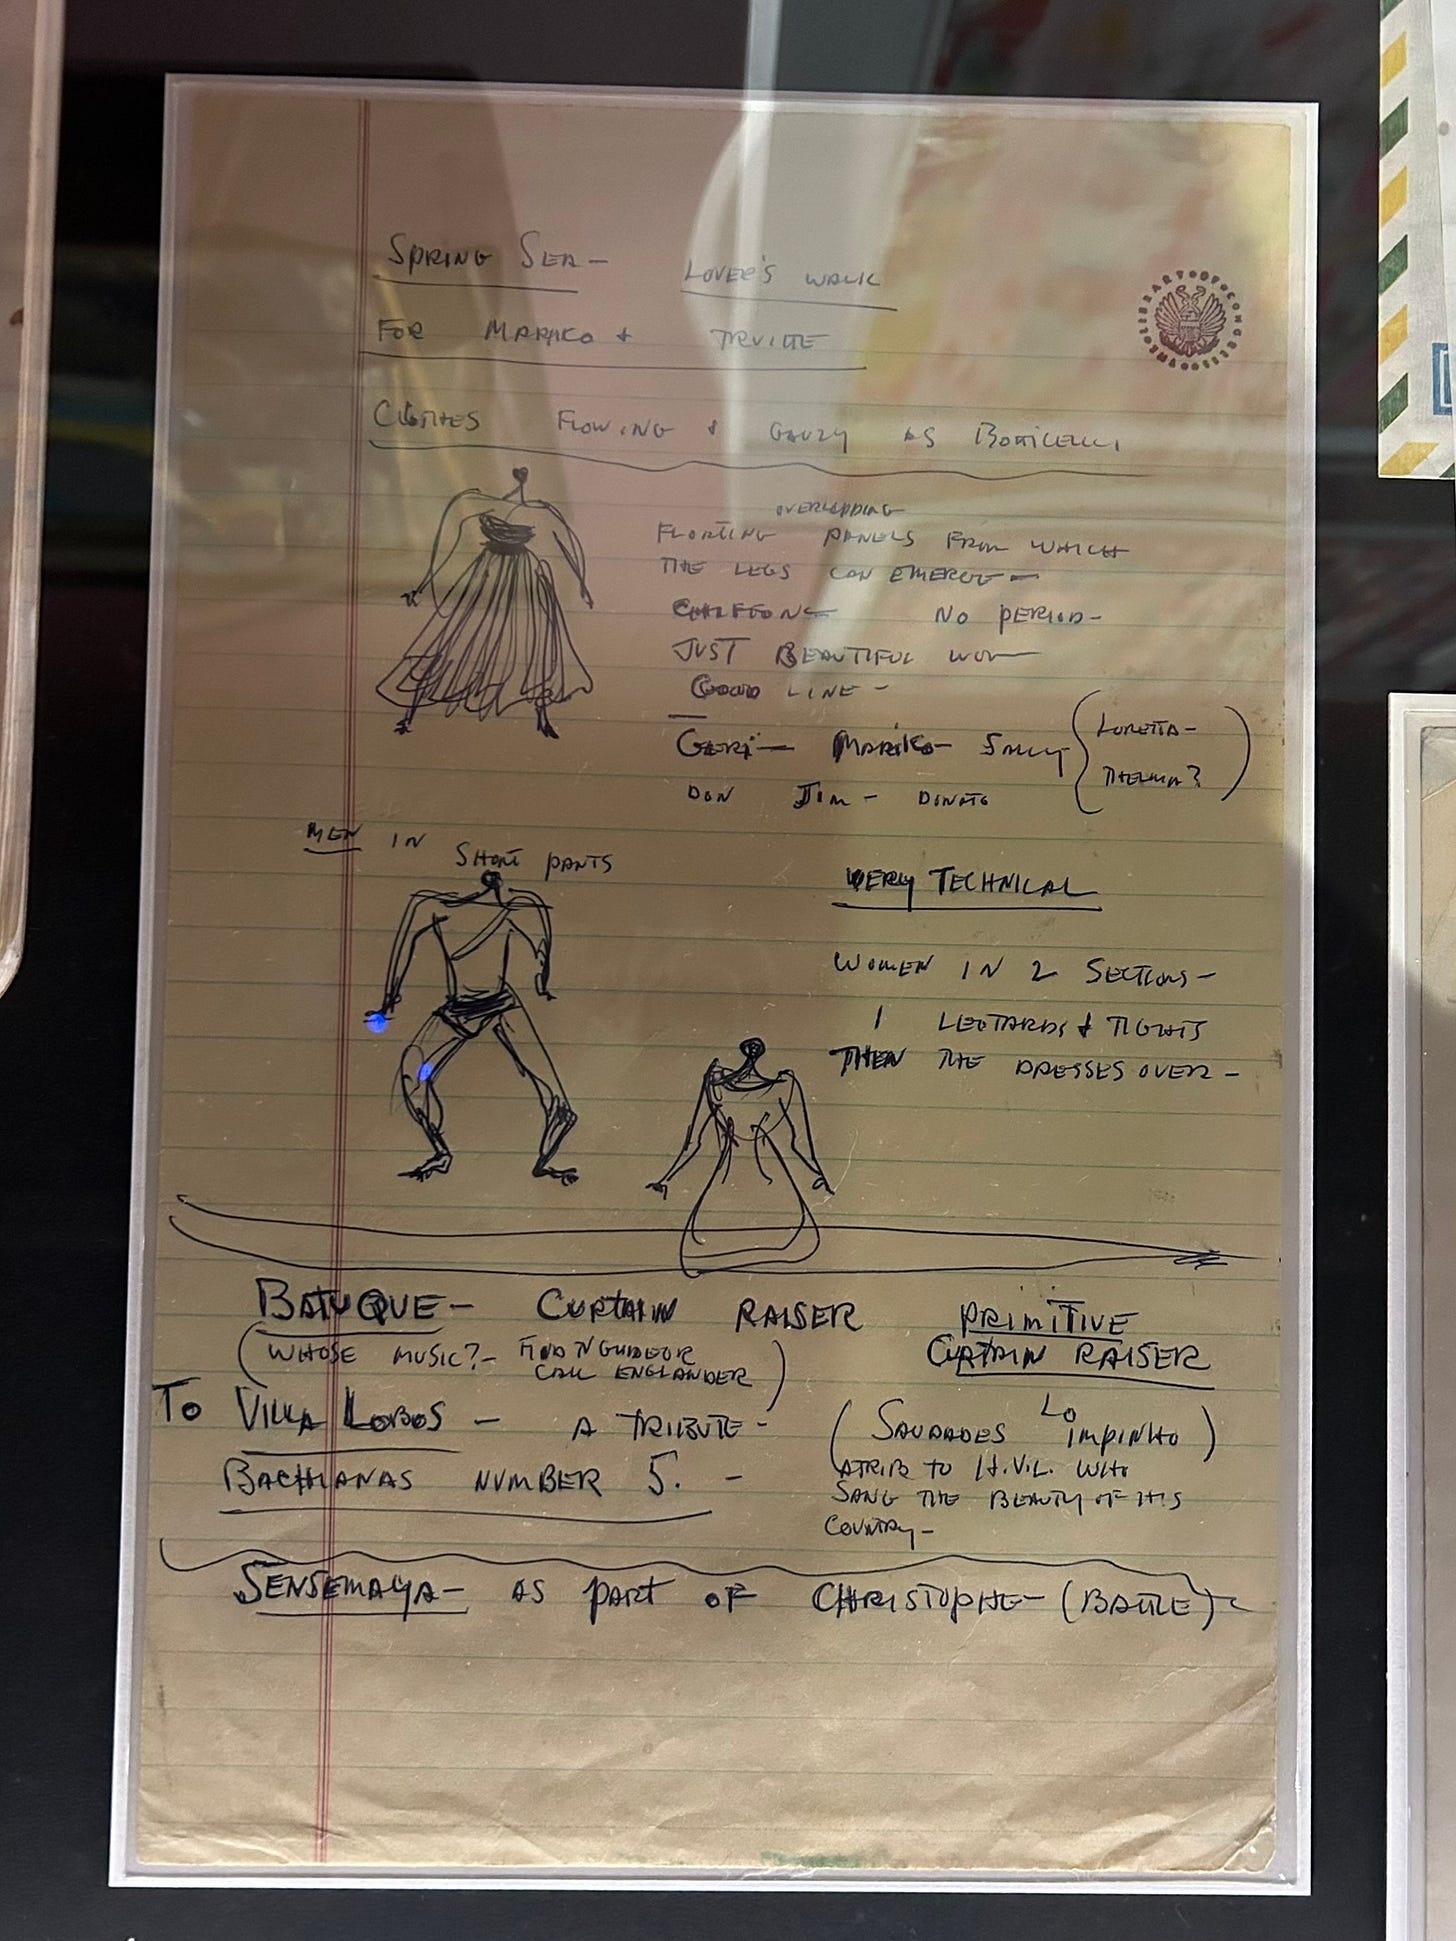 SPRING SEA - LOVER'S WALK
FOR MARIKO & TRUITTE
CLOTHES FLOWING & GAUZY AS BOTTICELLI
OVERLAPPING
FLOATING PANELS FROM WHICH
THE LEGS CAN EMERGE -
CHIFFON - NO PERIOD -
JUST BEAUTIFUL
GOOD LINE -
GERI - MARIKO - SALLY (LORETTA -
THELMA?)
DON JIM - DONATO
MEN IN SHORT PANTS
VERY TECHNICAL
WOMEN IN 2 SECTIONS -
1 LEOTARDS & TIGHTS
THEN THE DRESSES OVER -
BATUQUE - CURTAIN RAISER PRIMITIVE
CURTAIN RAISER
(WHOSE MUSIC? - FIND
CALL ENGLANDER)
TO VILLA LOBOS - A TRIBUTE -
BACHIANAS NUMBER 5. -
(SAUDADES LO IMPINHO)
ATRIB TO H.V.L. WHO
SANG THE BEAUTY OF HIS
COUNTRY -
SENSEMAYA - AS PART OF CHRISTOPHE - (BATTLE) -
LIBRARY OF CONGRESS